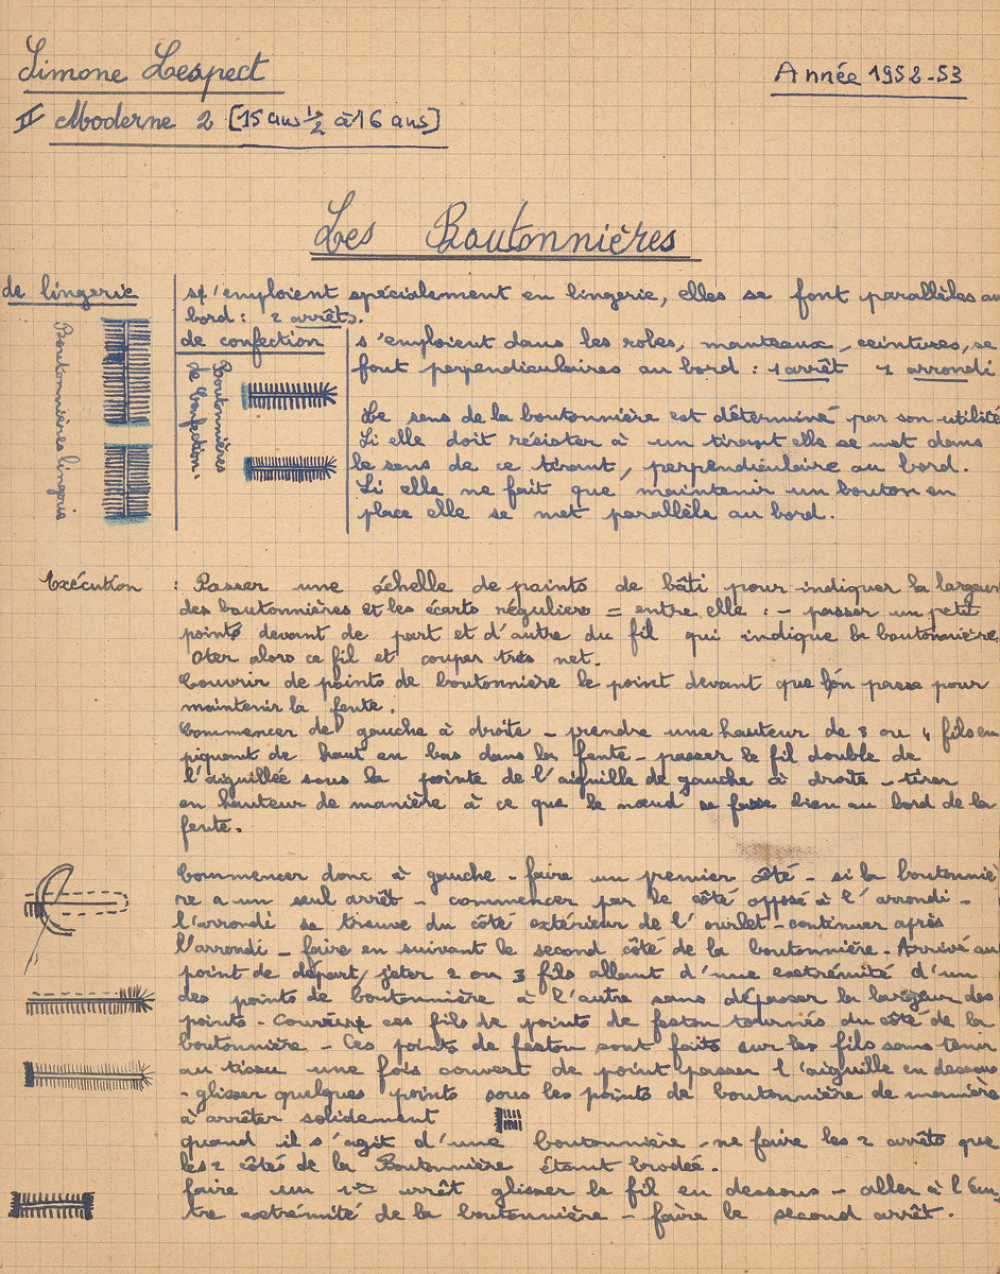 Simone Lespect
Année 1952-53
II Moderne 2 [15 ans 1/2 à 16 ans]
Les Boutonnières
de lingerie
s'emploient spécialement en lingerie, elles se font parallèles au
bord : 2 arrêts.
Boutonnières lingerie
de confection
Boutonnières
de Confection.
s'emploient dans les robes, manteaux, ceintures, se
font perpendiculaires au bord : 1 arrêt 1 arrondi
Le sens de la boutonnière est déterminé par son utilité
Si elle doit résister à un tirant elle se met dans
le sens de ce tirant, perpendiculaire au bord.
Si elle ne fait que maintenir un bouton en
place elle se met parallèle au bord.
Exécution : Passer une échelle de points de bâti pour indiquer la largeur
des boutonnières et les écarts réguliers = entre elle : - passer un petit
point devant de part et d'autre du fil qui indique la boutonnière.
Oter alors ce fil et couper très net.
Couvrir de points de boutonnière le point devant que l'on passe pour
maintenir la fente.
Commencer de gauche à droite - prendre une hauteur de 3 ou 4 fils en
piquant de haut en bas dans la fente - passer le fil double de
l'aiguillée sous la pointe de l'aiguille de gauche à droite - tirer
en hauteur de manière à ce que le nœud se fasse bien au bord de la
fente.
Commencer donc à gauche - faire un premier côté - si la boutonniè
re a un seul arrêt - commencer par le côté opposé à l'arrondi -
l'arrondi se trouve du côté extérieur de l'ourlet - continuer après
l'arrondi - faire en suivant le second côté de la boutonnière. Arrivé au
point de départ, jeter 2 ou 3 fils allant d'une extrémité d'un
des points de boutonnière à l'autre sans dépasser la largeur des
points - Couvrir ces fils de points de feston tournés du côté de la
boutonnière - Ces points de feston sont faits sur les fils sans tenir
au tissu une fois couvert de point passer l'aiguille en dessous
- glisser quelques points sous les points de boutonnière de manière
à arrêter solidement
quand il s'agit d'une boutonnière - ne faire les 2 arrêts que
les 2 côtés de la Boutonnière étant brodée.
faire un 1er arrêt glisser le fil en dessous - aller à l'au-
tre extrémité de la boutonnière - faire le second arrêt.